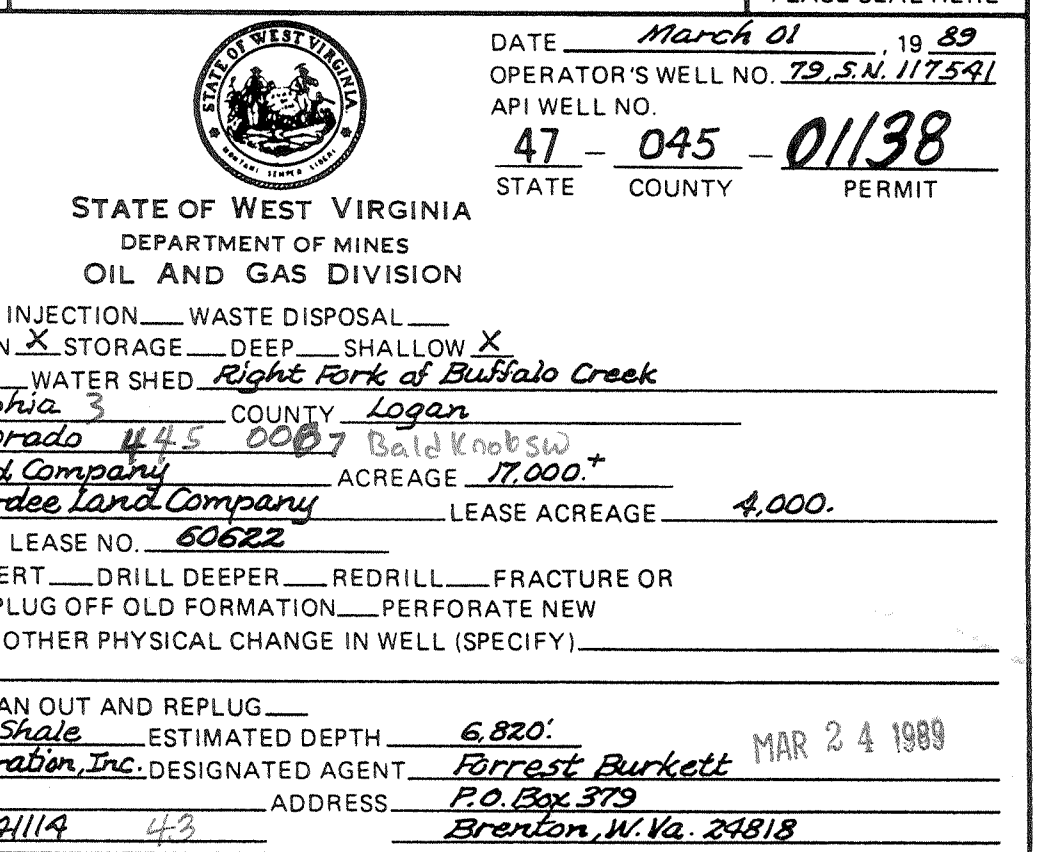 PLEASE SEAL HERE
STATE OF WEST VIRGINIA
MONTANI SEMPER LIBERI
DATE March 01, 19 89
OPERATOR'S WELL NO. 79, S.N. 117541
API WELL NO.
47 – 045 – 01138
STATE COUNTY PERMIT
STATE OF WEST VIRGINIA
DEPARTMENT OF MINES
OIL AND GAS DIVISION
INJECTION___ WASTE DISPOSAL___
N X STORAGE___ DEEP___ SHALLOW X
WATER SHED Right Fork of Buffalo Creek
phia 3 COUNTY Logan
orado 445 0067 Bald Knob SW
d Company ACREAGE 17,000.+
rdee Land Company LEASE ACREAGE 4,000.
LEASE NO. 60622
ERT___ DRILL DEEPER___ REDRILL___ FRACTURE OR
PLUG OFF OLD FORMATION___ PERFORATE NEW
OTHER PHYSICAL CHANGE IN WELL (SPECIFY)___
AN OUT AND REPLUG___
Shale ESTIMATED DEPTH 6,820'.
ration, Inc. DESIGNATED AGENT Forrest Burkett
MAR 24 1989
ADDRESS P.O. Box 379
41114 43 Brenton, W.Va. 24818